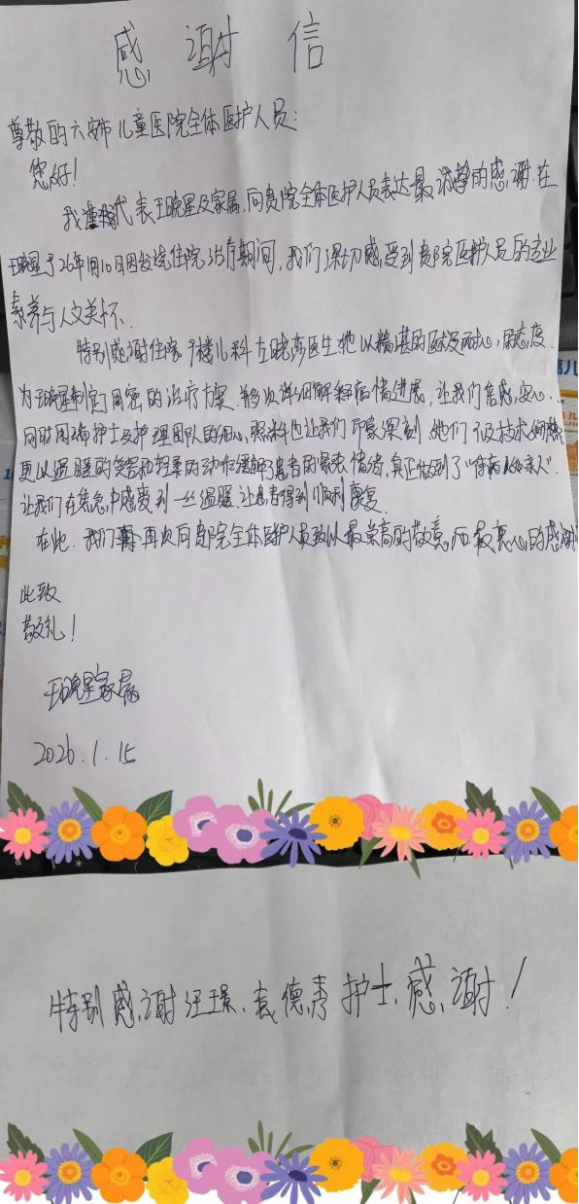 感谢信
尊敬的六安市儿童医院全体医护人员:
您好!
我谨代表王晚星及家属,向贵院全体医护人员表达最诚挚的感谢.在
王晚星于26年1月10日因发烧住院治疗期间,我们深切感受到贵院医护人员的专业
素养与人文关怀.
特别感谢住院 楼儿科左晓莎医生她以精湛的医术及耐心,的态度
为王晚星制定了周密的治疗方案.每次详细解释病情进展,让我们信感安心...
同时周 护士及护理团队的用心照料也让我们印象深刻.她们不仅技术
更以温暖的笑容和轻柔的动作缓解了患者的 情绪,真正做到了“待病人如亲人”.
让我们在焦急中感受到一丝温暖.让患者得到顺利康复.
在此.我们再次向贵院全体医护人员致以最崇高的敬意和最衷心的感谢
此致
敬礼!
王晚星家属
2026.1.15
特别感谢汪璟、袁德秀护士,感谢!